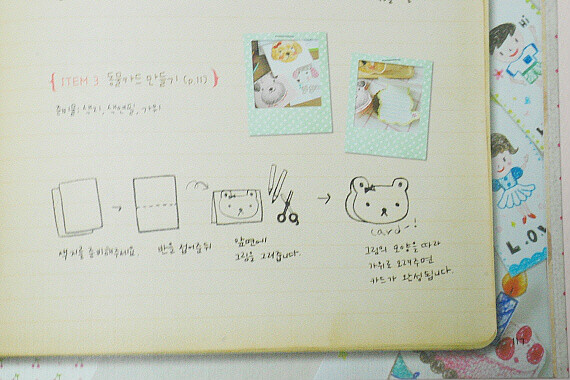 { ITEM 3. 동물카드 만들기 (p.11) }
준비물: 색지, 색연필, 가위
색지를 준비해주세요.
반을 접어줍니다
앞면에
그림을 그려줍니다.
card!
그림의 모양을 따라
가위로 오려주면
카드가 완성됩니다.
L.O.V
117